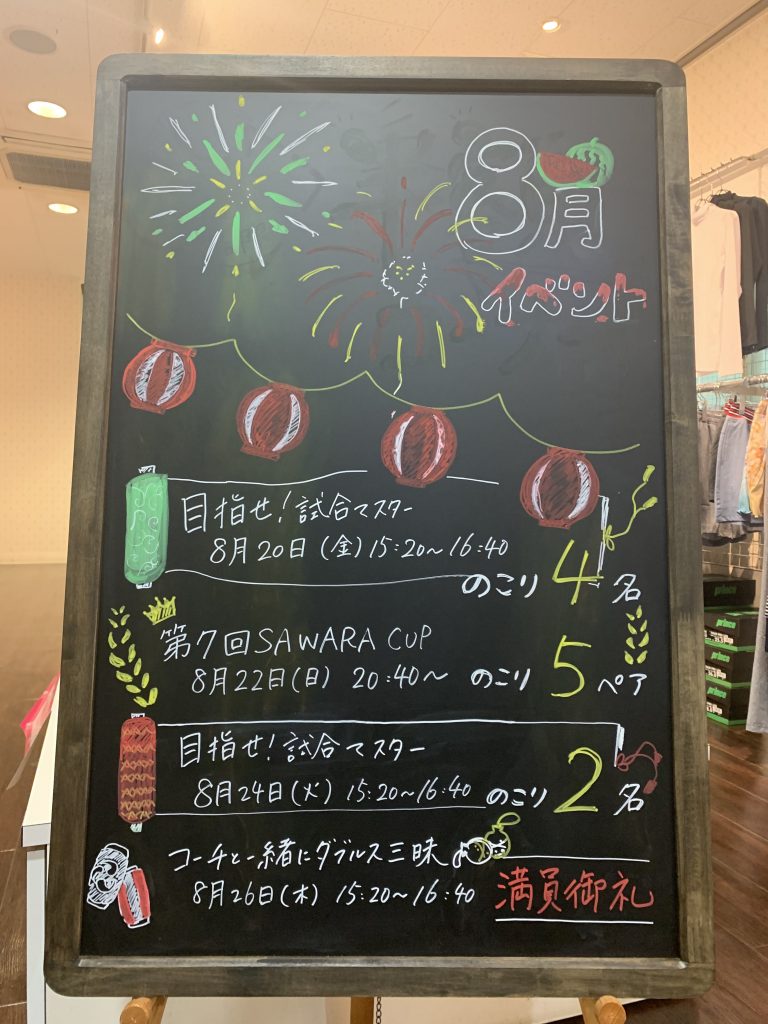 8月
イベント
目指せ!試合マスター
8月20日(金)15:20~16:40
のこり4名
第7回SAWARA CUP
8月22日(日) 20:40~ のこり5ペア
目指せ!試合マスター
8月24日(火) 15:20~16:40 のこり2名
コーチと一緒にダブルス三昧♪
8月26日(木) 15:20~16:40 満員御礼
prince
prince
prince